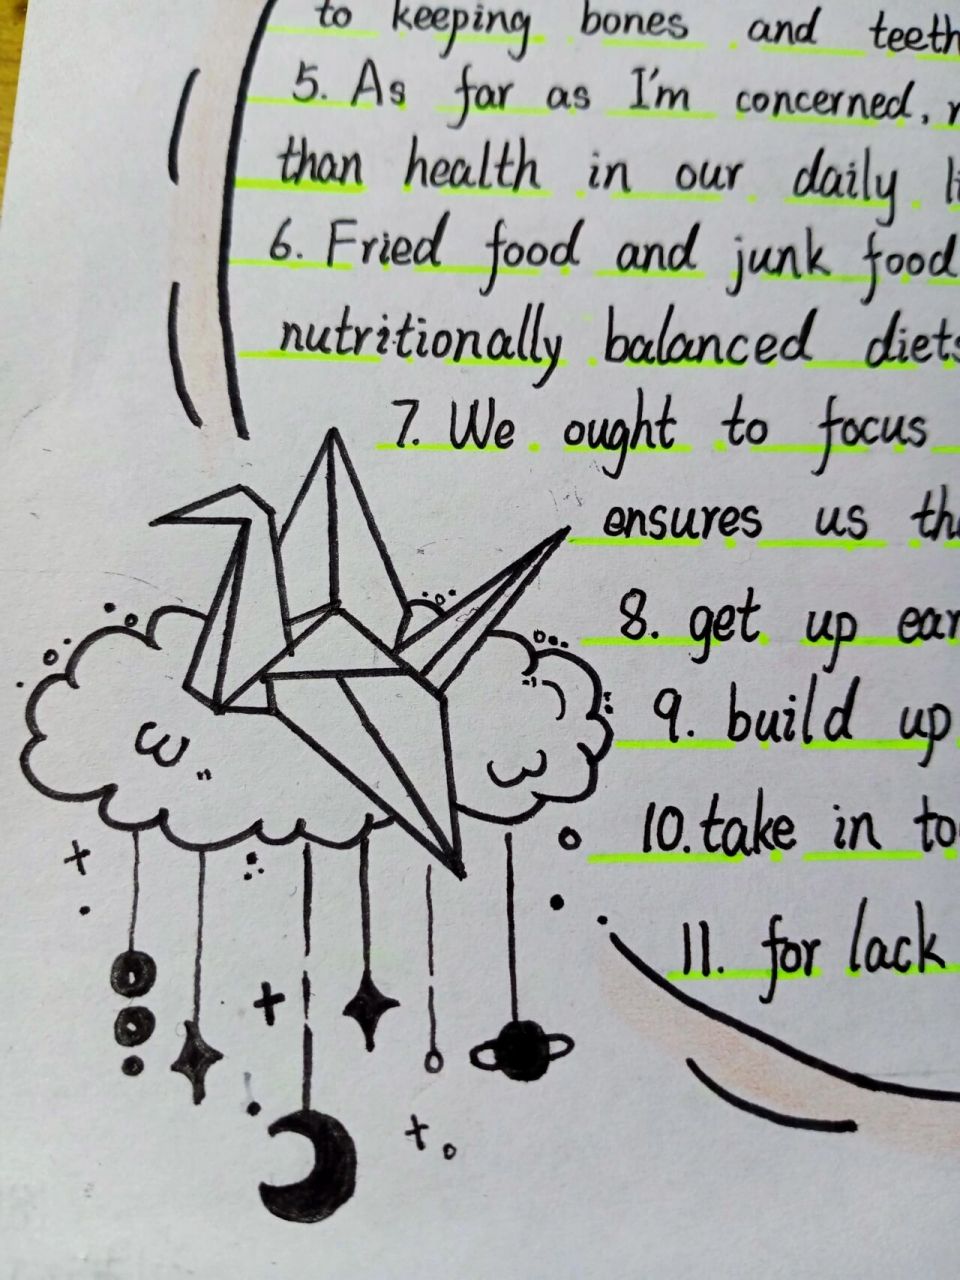 to keeping bones and teeth
5. As far as I'm concerned,
than health in our daily
6. Fried food and junk food
nutritionally balanced diets
7. We ought to focus
ensures us
8. get up
9. build up
10. take in
11. for lack